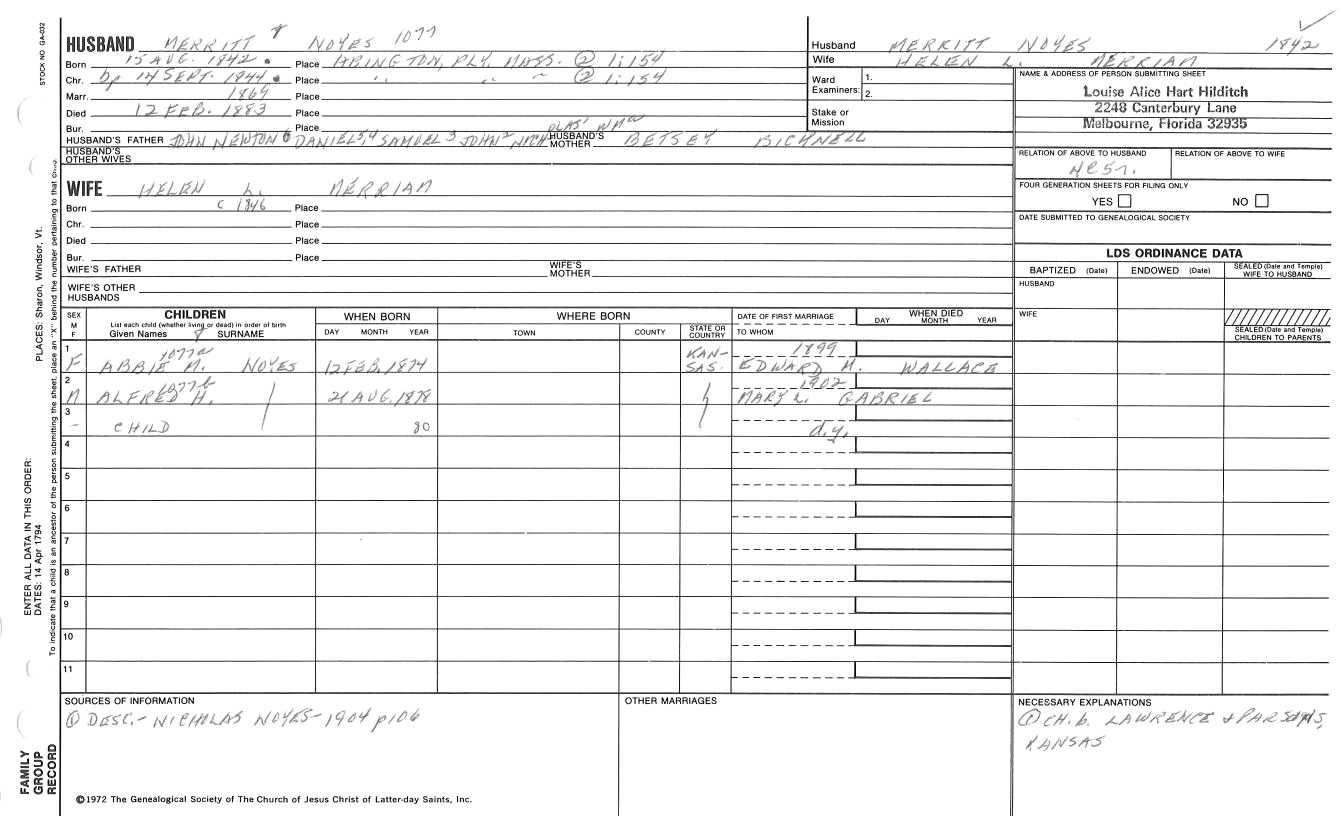 STOCK NO GA-032
HUSBAND MERRITT 8 NOYES 1077
Born 15 AUG. 1842. Place ABINGTON, PLY. MASS. ② 1:154
Chr. bp 14 SEPT. 1844. Place " " " ② 1:154
Marr. 1869 Place
Died 12 FEB. 1883 Place
Bur. Place
HUSBAND'S FATHER JOHN NEWTON 6 DANIEL 5,4 SAMUEL 3 JOHN 2 NICH HUSBAND'S MOTHER BETSEY BICKNELL
HUSBAND'S OTHER WIVES
WIFE HELEN L. MERRIAM
Born c 1846 Place
Chr. Place
Died Place
Bur. Place
WIFE'S FATHER WIFE'S MOTHER
WIFE'S OTHER HUSBANDS
Husband MERRITT NOYES 1842
Wife HELEN L. MERRIAM
Ward Examiners: 1. 2.
Stake or Mission
NAME & ADDRESS OF PERSON SUBMITTING SHEET
Louise Alice Hart Hilditch
2248 Canterbury Lane
Melbourne, Florida 32935
RELATION OF ABOVE TO HUSBAND RELATION OF ABOVE TO WIFE
4C5r.
FOUR GENERATION SHEETS FOR FILING ONLY
YES NO
DATE SUBMITTED TO GENEALOGICAL SOCIETY
LDS ORDINANCE DATA
BAPTIZED (Date) ENDOWED (Date) SEALED (Date and Temple) WIFE TO HUSBAND
HUSBAND
WIFE
SEALED (Date and Temple) CHILDREN TO PARENTS
SEX M F CHILDREN WHEN BORN WHERE BORN DATE OF FIRST MARRIAGE WHEN DIED
List each child (whether living or dead) in order of birth
Given Names 9 SURNAME DAY MONTH YEAR TOWN COUNTY STATE OR COUNTRY TO WHOM DAY MONTH YEAR
1 1077a KAN- 1899
F ABBIE M. NOYES 12 FEB. 1874 SAS. EDWARD M. WALLACE
2 1077b 1902
M ALFRED H. 21 AUG. 1878 MARY L. GABRIEL
3
- CHILD 80 d.y.
4
5
6
7
8
9
10
11
SOURCES OF INFORMATION
① DESC.- NICHOLAS NOYES-1904 p106
OTHER MARRIAGES
NECESSARY EXPLANATIONS
① CH. b. LAWRENCE & PARSONS,
KANSAS
©1972 The Genealogical Society of The Church of Jesus Christ of Latter-day Saints, Inc.
PLACES: Sharon, Windsor, Vt.
ENTER ALL DATA IN THIS ORDER:
DATES: 14 Apr 1794
To indicate that a child is an ancestor of the person submitting the sheet, place an "X" behind the number pertaining to that
FAMILY
GROUP
RECORD